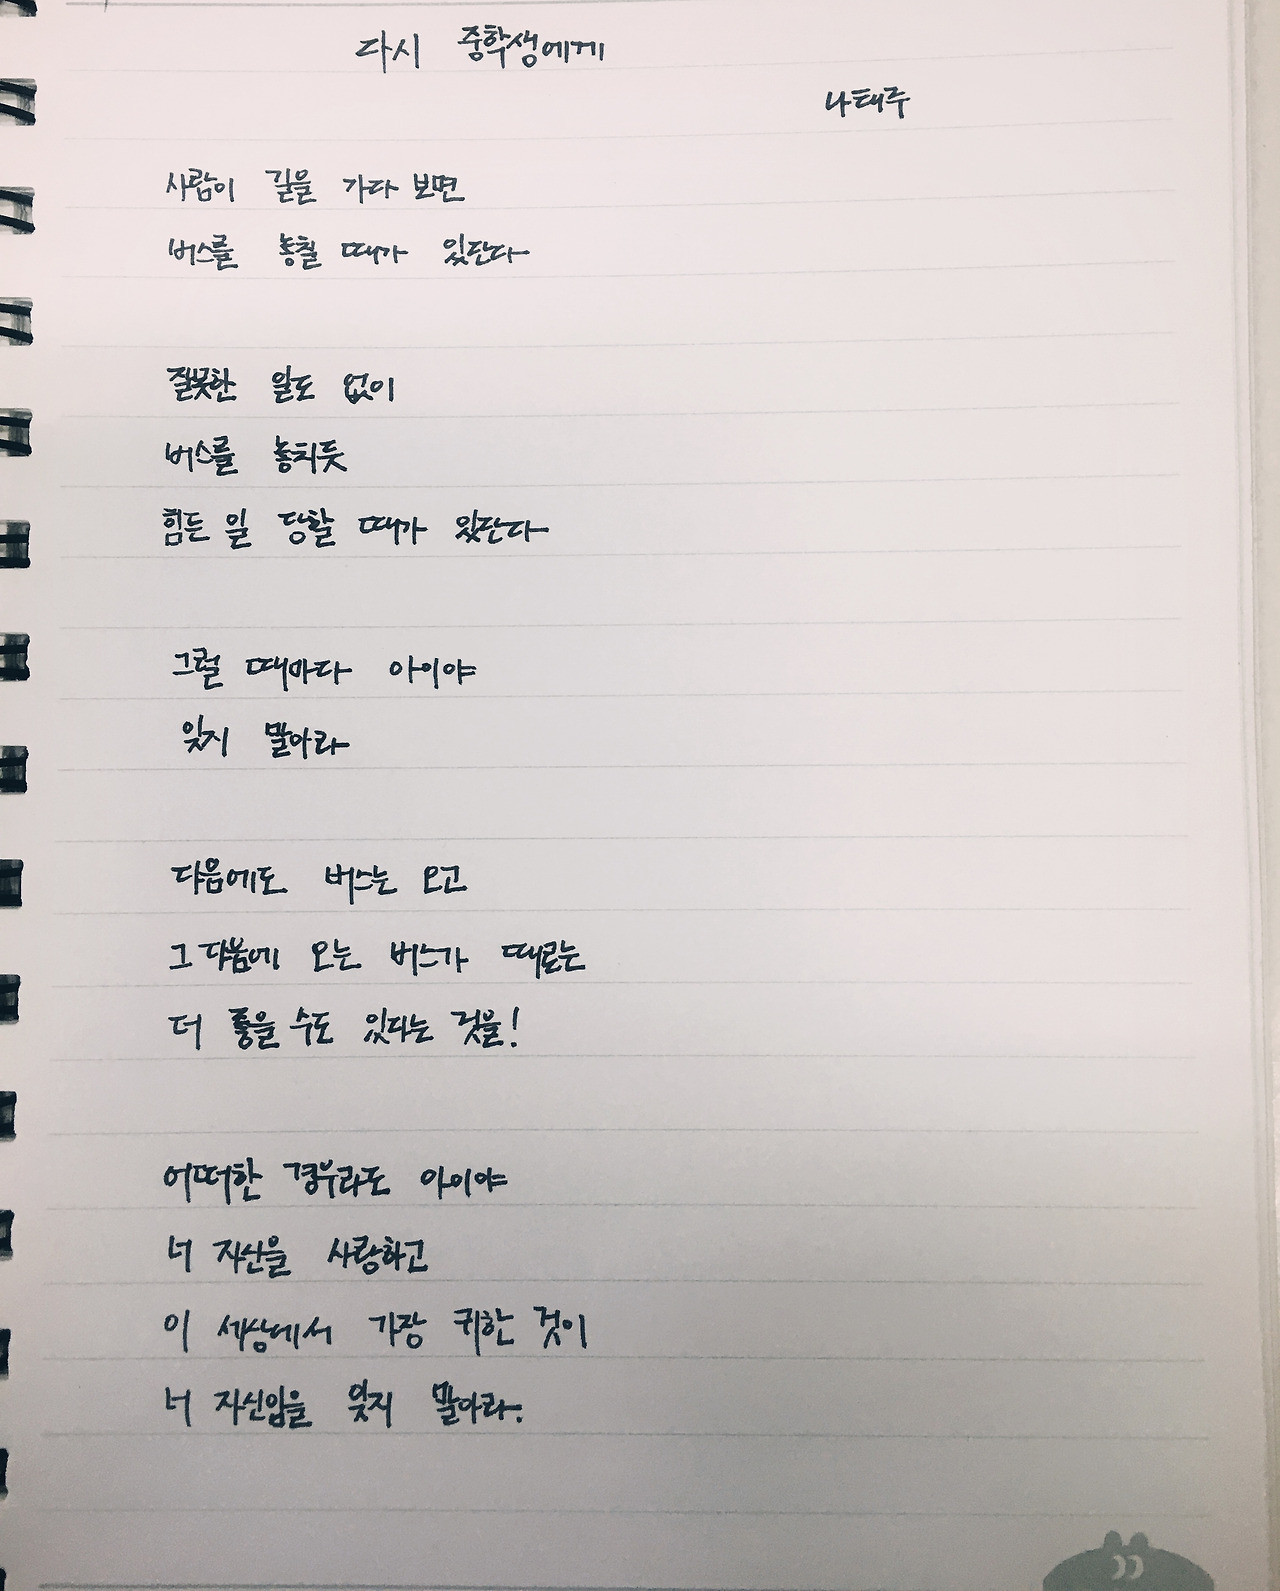 다시 중학생에게
나태주
사람이 길을 가다 보면
버스를 놓칠 때가 있단다
잘못한 일도 없이
버스를 놓치듯
힘든 일 당할 때가 있단다
그럴 때마다 아이야
잊지 말아라
다음에도 버스는 오고
그 다음에 오는 버스가 때로는
더 좋을 수도 있다는 것을!
어떠한 경우라도 아이야
너 자신을 사랑하고
이 세상에서 가장 귀한 것이
너 자신임을 잊지 말아라.